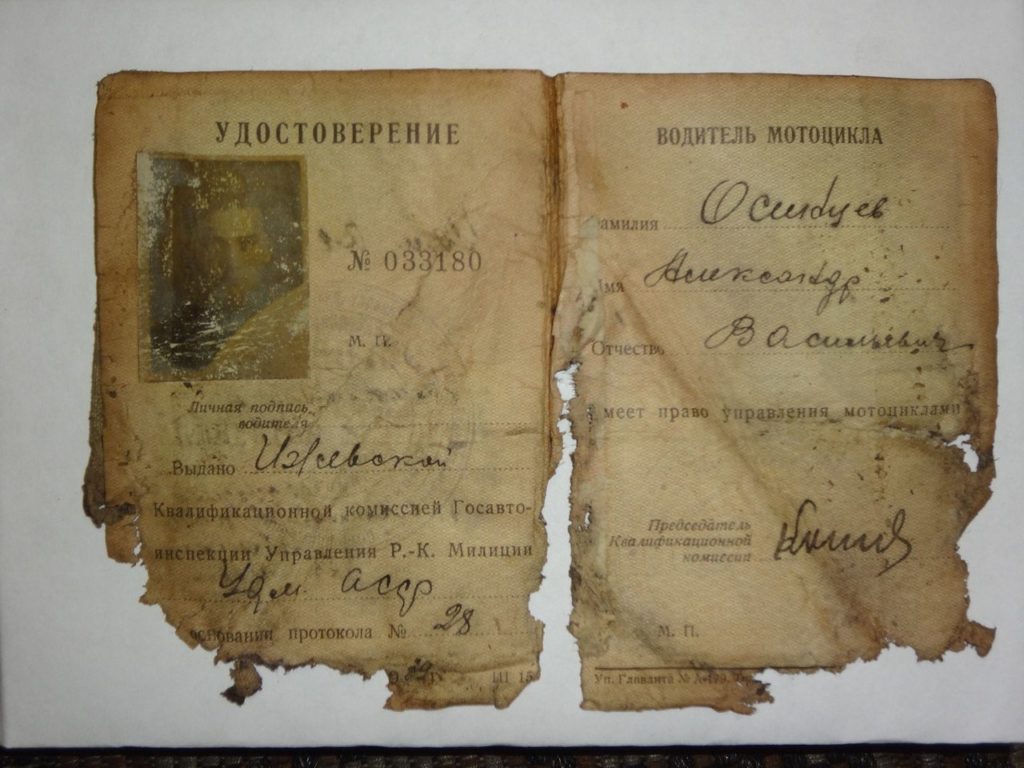 УДОСТОВЕРЕНИЕ
№ 033180
М. П.
Личная подпись
водителя
Выдано Ижевской
Квалификационной комиссией Госавто-
инспекции Управления Р.-К. Милиции
Удм. АССР
основании протокола № 28
ВОДИТЕЛЬ МОТОЦИКЛА
амилия Осинцев
Имя Александр
Отчество Васильевич
меет право управления мотоциклами
Председатель
Квалификационной
комиссии
М. П.
Уп. Главлита №